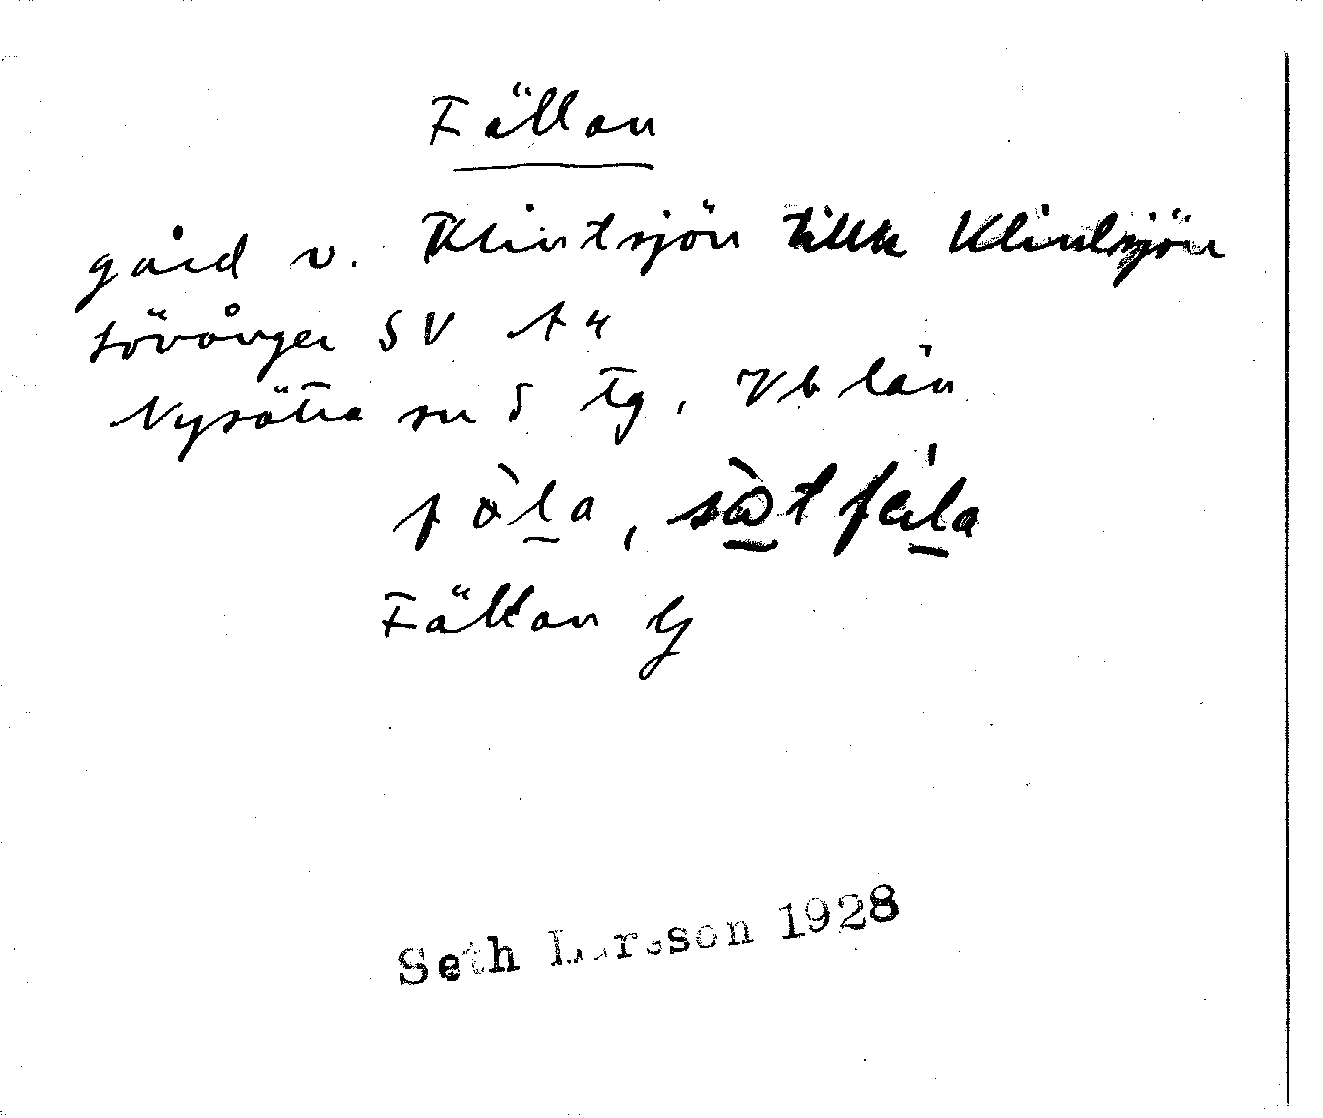 Fällan
gård v. Klintsjön tillh Klintsjön
Lövånger SV A 4
Nysätra sn S Tg, Vb län
Fällan G
Seth Larsson 1928